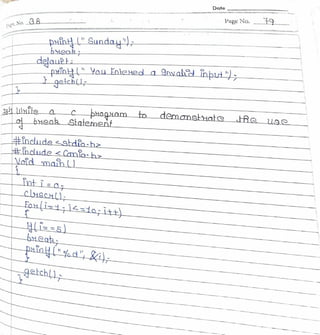 Date
Page No. 38
Page No. 79
printf(" Sunday");
break;
default:
printf(" You Entered a Invalid Input");
} getch();
}
Write a c program to demonstrate the use
of break statement
#include <stdio.h>
#include <Conio.h>
Void main()
{
int i=0;
clrscr();
for(i=1; i<=10; i++)
{
if(i==5)
break;
printf("%d", &i);
}
getch();
}